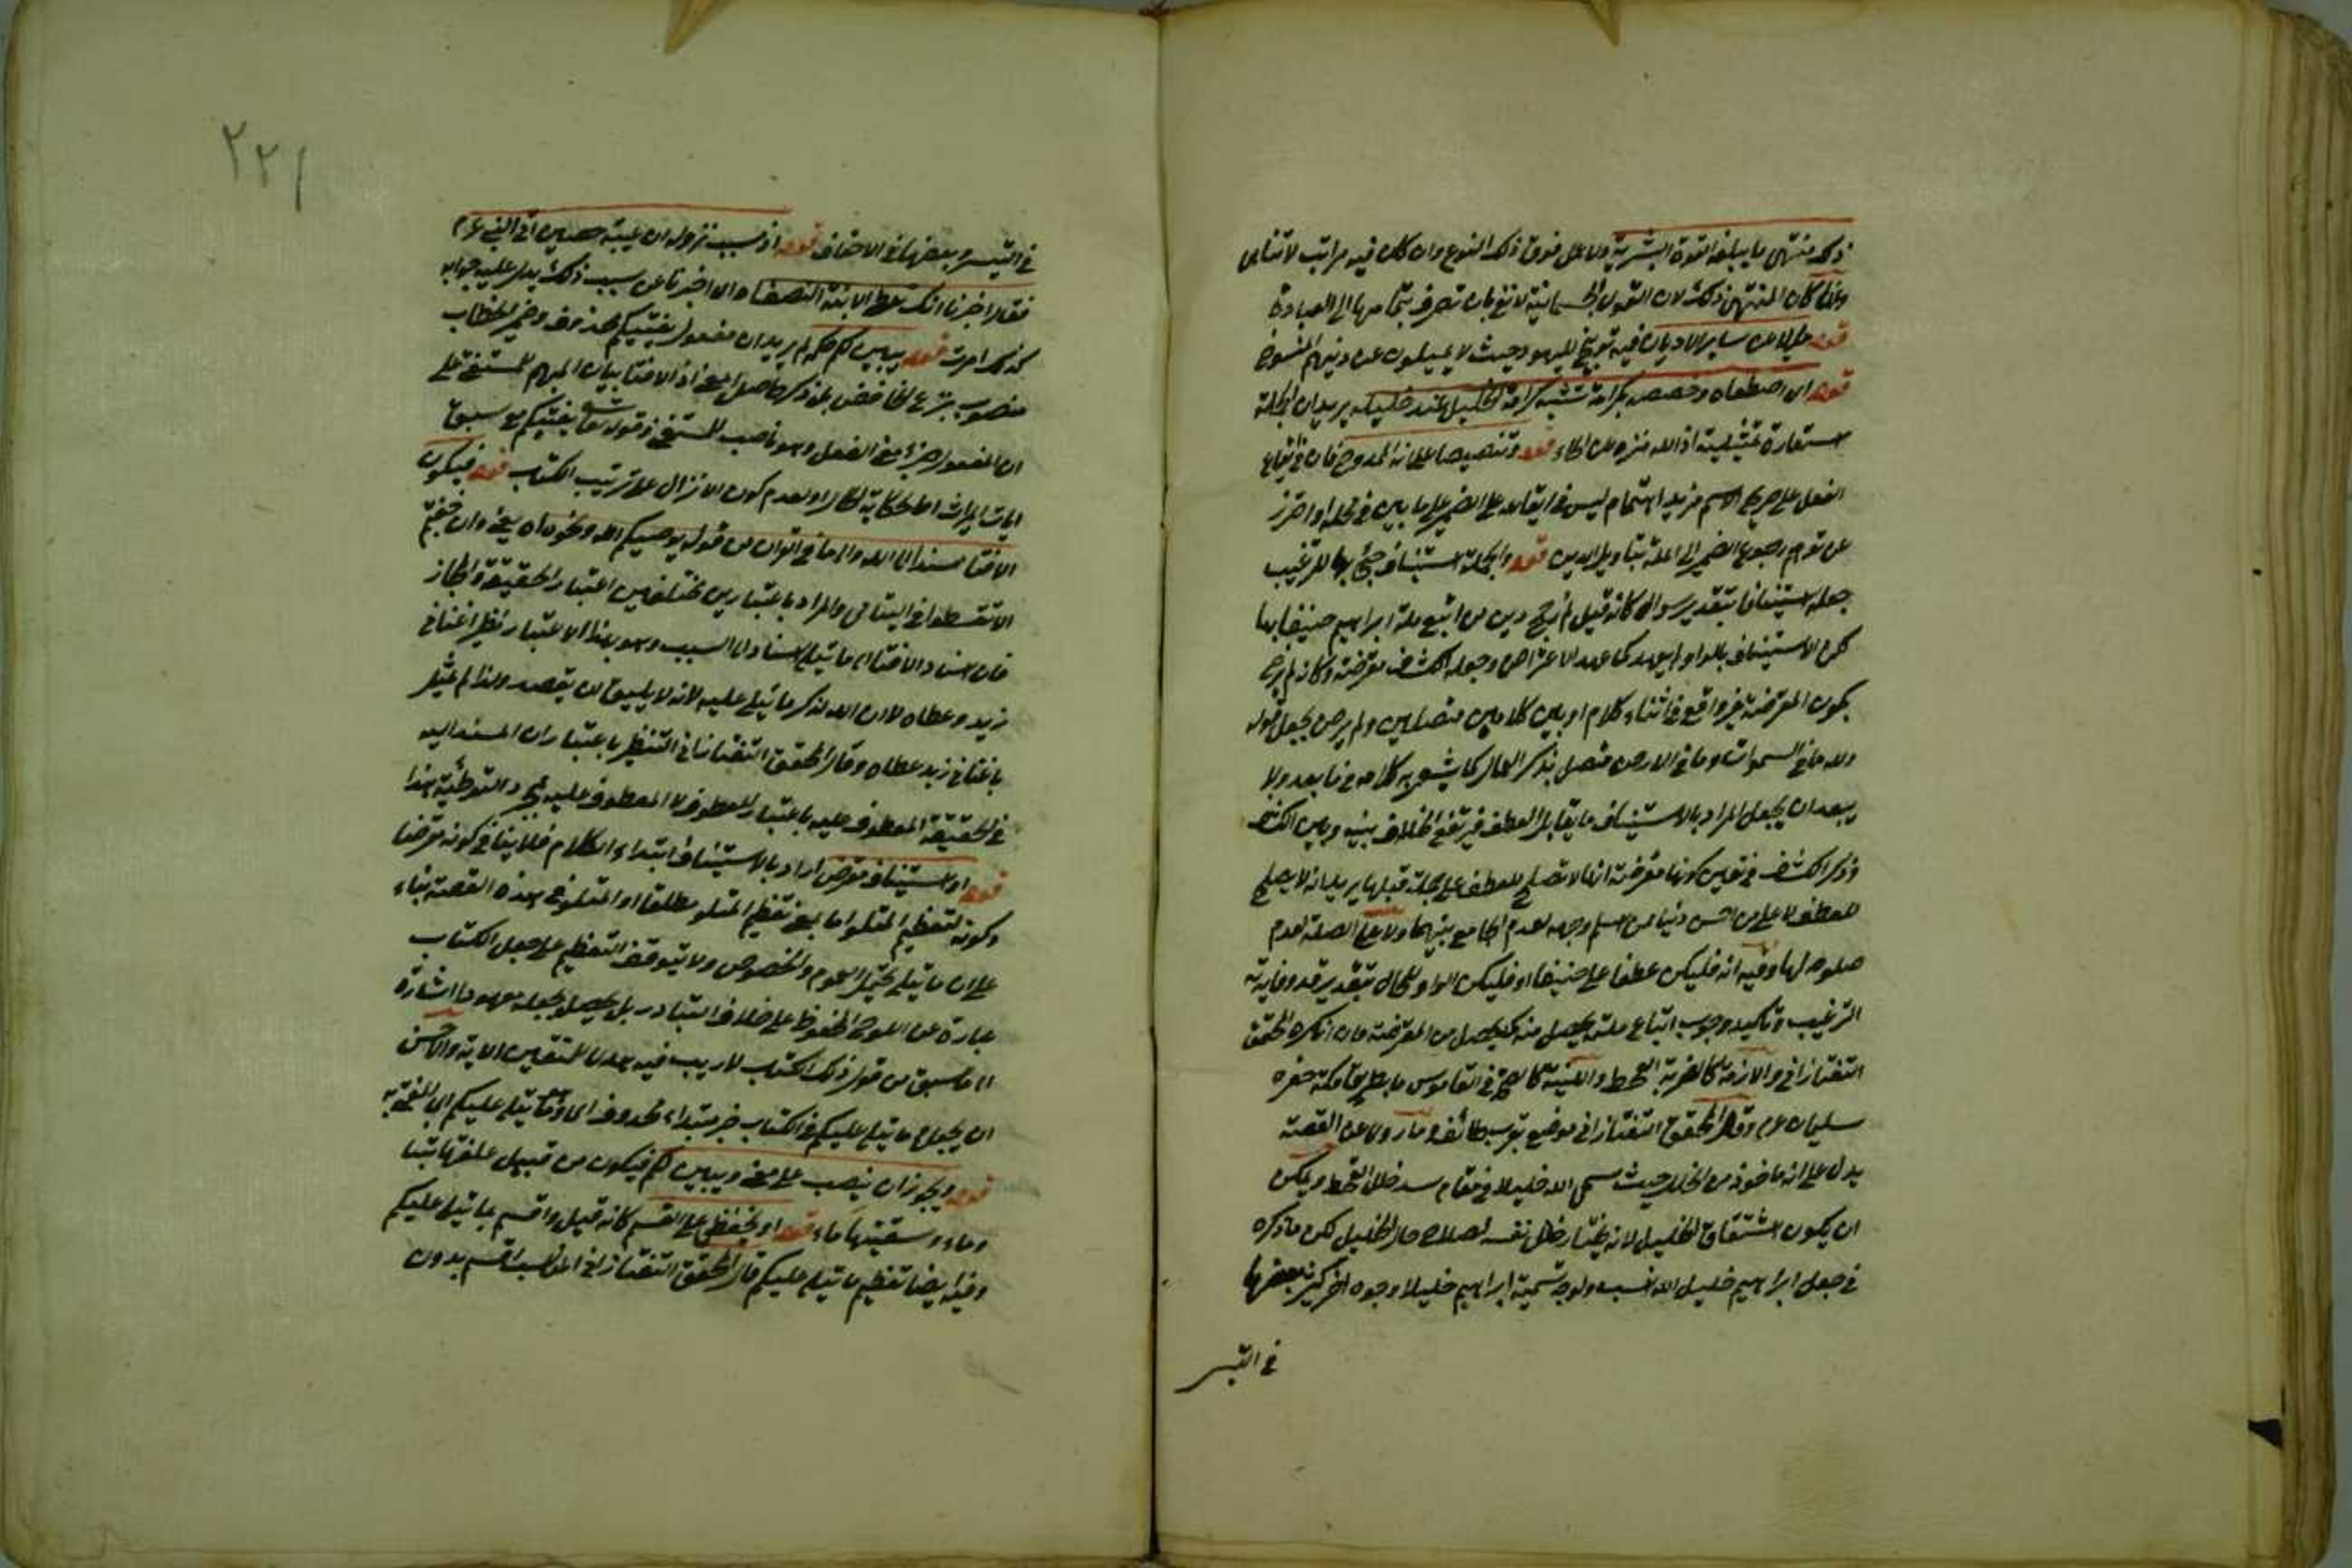 ذكر منتهى ما يبلغه القوة البشرية ولا عمل فوق ذلك النوع وان كان فيه مراتب لا تتناهى
وانما كان المنتهى ذلك لان القوى الجسمانية لا تفي بان تصرف بتمامها الى العبادة
قوله مايلا عن سائر الاديان فيه توبيخ لليهود حيث لا يميلون عن دينهم المنسوخ
قوله اى اصطفاه وخصصه بكرامة تشبه كرامة الخليل عند خليله يريد ان الجملة
استعارة تمثيلية اذ الله منزه عن الخلة قوله وتنصيصا على انه الممدوح فان في ايقاع
الفعل على صريح الاسم مزيد اهتمام ليس في ايقاعه على الضمير على ما بين في محله او احترز
عن توهم رجوع الضمير الى الملة بتاويل الدين قوله والجملة استيناف جئ بها للترغيب
جعله استينافا بتقدير سوال كانه قيل لم رجح دين من اتبع ملة ابراهيم حنيفا بها
لكن الاستيناف بالواو لم يعهد كما عهد الاعتراض وجعله الكشاف معترضة وكانه لم يرض
بكون المعترضة غير واقع في اثناء كلام او بين كلامين متصلين ولم يرض بجعل قوله
ولله ما في السموات وما في الارض متصل بذكر العمال كما يشعر به كلامه في ما بعد ولا
يبعد ان يجعل المراد بالاستيناف ما يقابل العطف فيرتفع الخلاف بينه وبين الكشاف
وذكر الكشاف في تعيين كونها معترضة انها لا تصلح للعطف على جملة قبلها يريد انه لا يصلح
للعطف لا على من احسن دينا ممن اسلم وجهه لعدم الجامع بينهما ولا على الصلة لعدم
صلوحه لها وفيه انه فليكن عطفا على حنيفا او فليكن الواو للحال بتقدير قد وفايدته
الترغيب وتاكيد وجوب اتباع ملته يحصل منه كما يحصل من المعترضة وان انكره المحقق
التفتازاني والازمة كالضربة القحط
سليمان عم وقال المحقق التفتازاني موضع بقرب طائف وما روى عن القصة
يدل على انه ماخوذ من الخلل حيث سمى الله خليلا في مقام سد خلل القحط ويمكن
ان يكون اشتقاق الخليل لانه يختار خلل نفسه لصلاح حال الخليل لكن ما ذكره
في جعل ابراهيم خليل الله انسب ولوجه تسمية ابراهيم خليلا وجوه اخر كثير بعضها
في التيسر
٢٢١
في التيسر وبعضها في الاحقاف قوله اذ سبب نزوله ان عيينة بن حصين اتى النبي عم
فقال اخبرنا انك تعطى الابنة النصف اى اخبرنا عن سبب ذلك يدل عليه جوابه
كذلك امرت قوله يبين لكم حكمه لم يريد ان مفعول يفتيكم محذوف وضمير الخطاب
منصوب بنزع الخافض بل ذكر حاصل المعنى اذ الافتا بيان المبهم للمستفتي على
ان المفعول جزء معنى الفعل وهو ناصب للمستفتي وقوله تعا يفتيكم مع سبق
ايات الميراث اما لحكاية الحال او لعدم كون الانزال على ترتيب الكتاب قوله فيكون
الافتا مسندا الى الله والى ما في القران من قوله يوصيكم الله ونحوه اه يعني وان خفتم
الا تقسطوا في اليتامى والمراد باعتبارين مختلفين اعتبار الحقيقة والمجاز
فان اسناد الافتا الى ما يتلى اسناد الى السبب وهو بهذا الاعتبار نظير اغناني
زيد وعطاه لا ان الله لذكر ما يتلى عليه لانه لا يليق ان يقصد ولذا لم يمثل
باغناني زيد عطاه وقال المحقق التفتازاني التنظير باعتبار ان المسند اليه
في الحقيقة المعطوف عليه باعتبار المعطوف لا المعطوف عليه لمجرد التوطئة هذا
قوله او استيناف معترض اراد بالاستيناف ابتداء الكلام فلا ينافي كونه معترضا
وكونه لتعظيم المتلو اما بمعنى تعظيم المتلو مطلقا او المتلو في هذه القصة بناء
على ان ما يتلى يحتمل العموم والخصوص ولا يتوقف التعظيم على جعل الكتاب
عبارة عن اللوح المحفوظ على خلاف التبادر بل يحصل بجعله معهودا اشارة
الى ما سبق من قوله ذلك الكتاب لا ريب فيه هدى للمتقين الاية والاحسن
ان يجعل ما يتلى عليكم في الكتاب خبر مبتداء محذوف اى وما يتلى عليكم اى المفتى به
قوله ويجوز ان ينصب على معنى ويبين لكم فيكون من قبيل علفتها تبنا
وماء وسقيتها ماء قوله او يخفض على القسم كانه قيل واقسم بما يتلى عليكم
وفيه ايضا تعظيم ما يتلى عليكم قال المحقق التفتازاني المناسب اقسم بدون